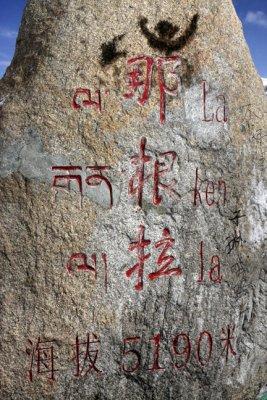 ལ། 那 La
གན་ 根 ken
ལ། 拉 la
海拔 5190米